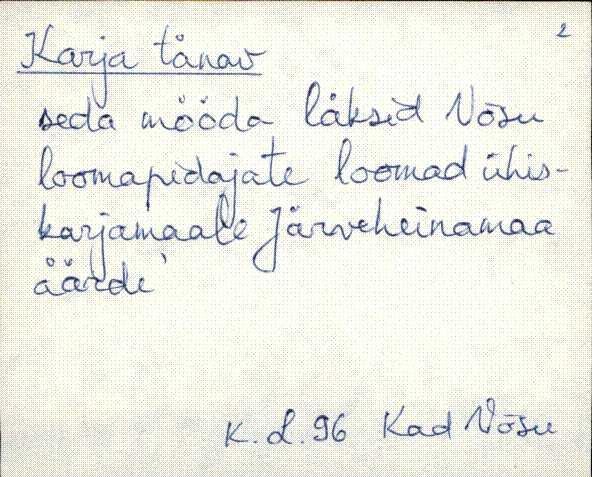 2
Karja tänav
seda mööda läksid Võsu
loomapidajate loomad ühis-
karjamaale Järveheinamaa
äärde'
K. L. 96 Kad Võsu